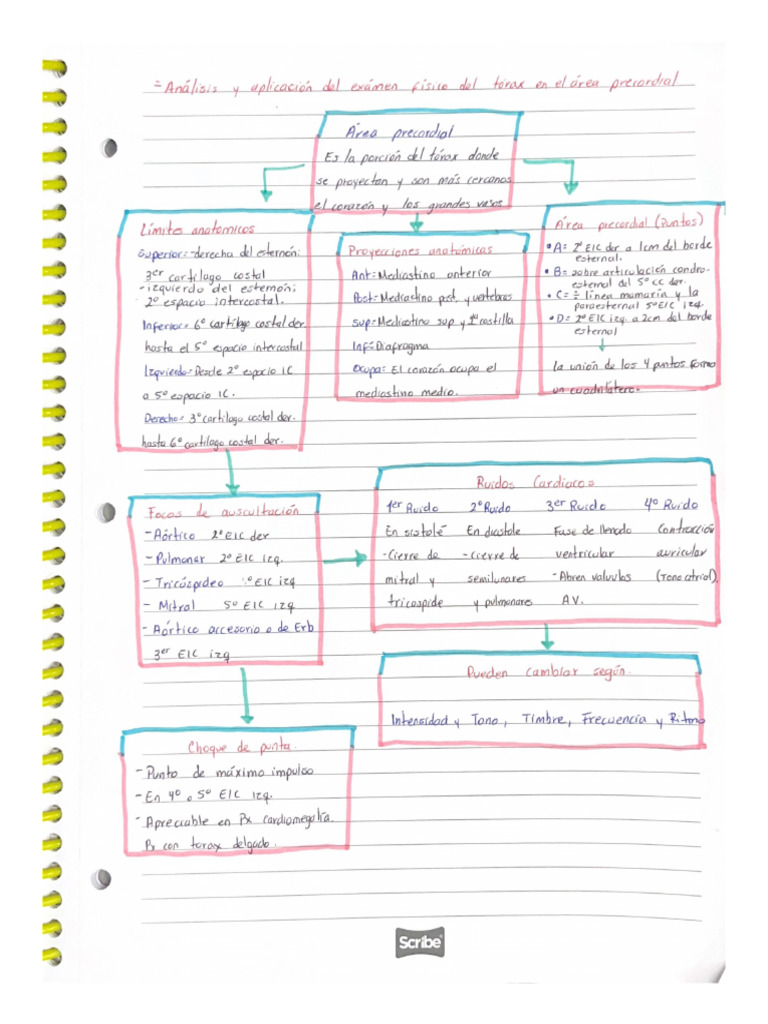 = Análisis y aplicación del exámen físico del tórax en el área precordial
Área precordial
Es la porción del tórax donde
se proyectan y son más cercanos
el corazón y los grandes vasos
Límites anatomicos
Superior:-derecha del esternón:
3er cartilago costal
-izquierdo del esternón:
2º espacio intercostal.
Inferior= 6º cartílago costal der
hasta el 5º espacio intercostal
Izquierdo= Desde 2º espacio IC
a 5º espacio IC.
Derecho= 3º cartilago costal der.
hasta 6º cartílago costal der.
Proyecciones anatómicas
Ant=Mediastino anterior
Post=Mediastino post. y vertebras
Sup=Mediastino sup y 1ª costilla
Inf=Diafragma
Ocupa= El corazón ocupa el
mediastino medio.
Área precordial (Puntos)
• A= 2º EIC der a 1cm del borde
esternal.
• B= sobre articulación condro-
esternal del 5º CC der.
• C= ÷ línea mamaria y la
paraesternal 5º EIC izq.
• D= 2º EIC izq. a 2cm del borde
esternal
La unión de los 4 puntos forma
un cuadrilátero.
Focos de auscultación
- Aórtico 2º EIC der
- Pulmonar 2º EIC izq.
- Tricúspideo EIC izq
- Mitral 5º EIC izq
- Aórtico accesorio o de Erb
3er EIC izq
Ruidos Cardiacos
1er Ruido 2º Ruido 3er Ruido 4º Ruido
En sistolé En diastole Fase de llenado Contracción
-Cierre de -Cierre de ventricular auricular
mitral y semilunares -Abren valvulas (Tono atrial).
tricuspide y pulmonares AV.
Pueden cambiar según.
Intensidad y Tono, Timbre, Frecuencia y Ritmo
Choque de punta.
- Punto de máximo impulso
- En 4º o 5º EIC izq.
- Apreciable en Px cardiomegalía.
Px con torax delgado.
Scribe